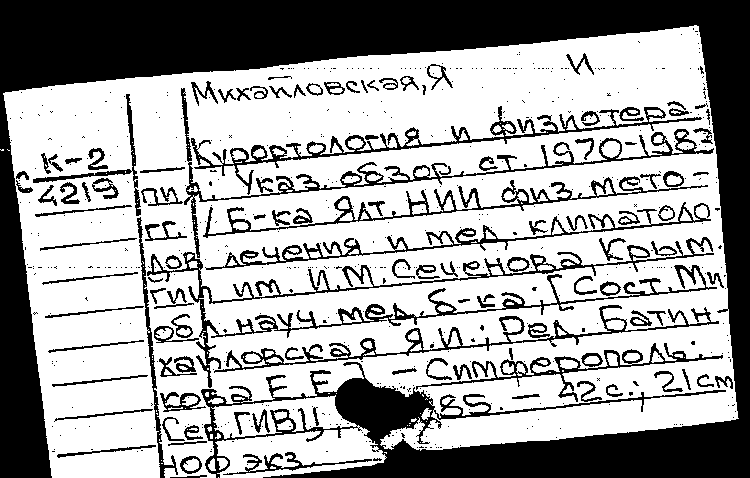 Михайловская, Я И
К-2
С 4219
Курортология и физиотера-
пия: Указ. обзор. ст. 1970-1983
гг. / Б-ка Ялт. НИИ физ. мето-
дов лечения и мед. климатоло-
гии им. И.М. Сеченова, Крым.
обл. науч. мед. б-ка; [Сост. Ми
хайловская Я.И.; Ред. Батин-
кова Е.Е.] – Симферополь:
Сев. ГИВЦ, 85. – 42 с.; 21 см
экз.